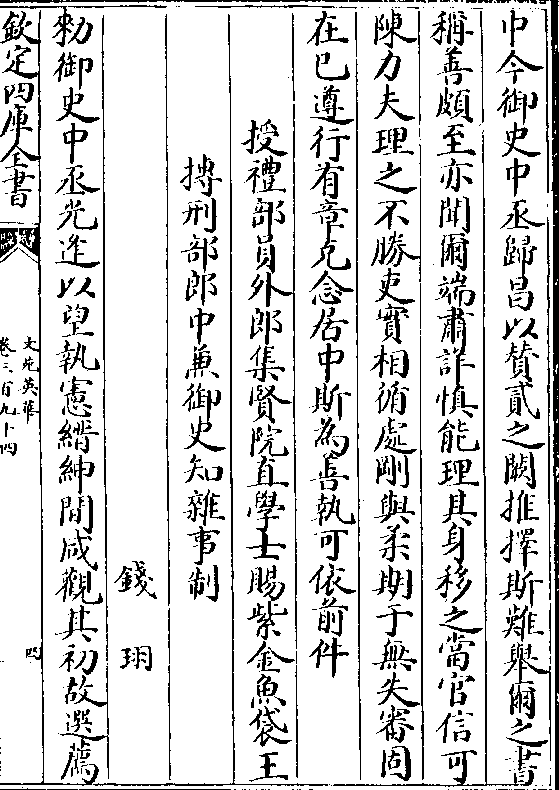 中今御史中丞歸昌以贊貳之闕推擇斯難舉爾之書
稱善頗至亦聞爾端肅詳慎能理其身移之當官信可
陳力夫理之不勝吏實相循處剛與柔期于無失審固
在已遵行有章克念居中斯為善執可依前件
授禮部員外郎集賢院直學士賜紫金魚袋王
摶刑部郎中兼御史知雜事制
錢珝
勑御史中丞光逢以望執憲縉紳間咸觀其初故選薦
欽定四庫全書
文苑英華
卷三百九十四
四